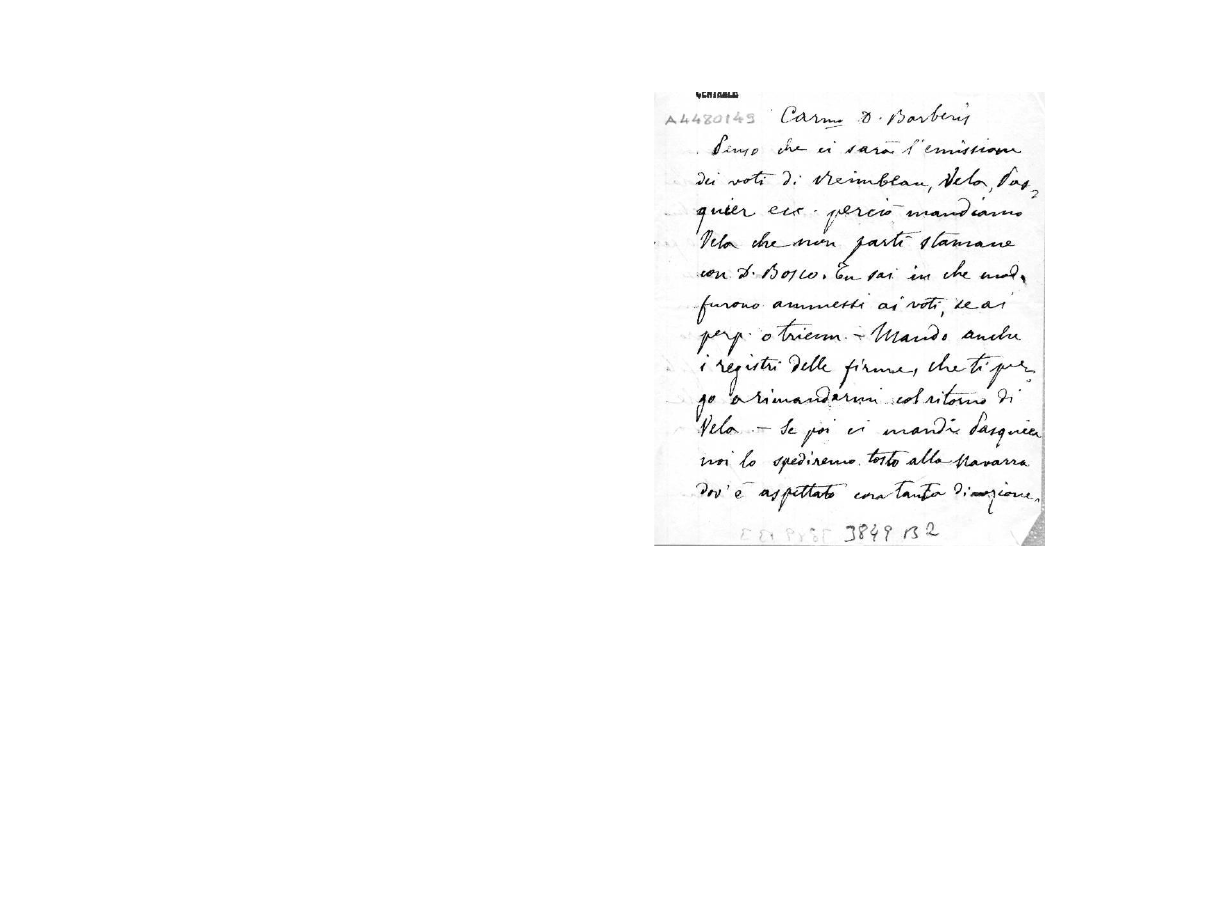 CENTRALE
A4480149 Carmo D. Barberis
Penso che ci sarà l'emissione
dei voti di Reimbeau, Vela, Pas-
quier ecc. perciò mandiamo
Vela che non partì stamane
con D. Bosco. Tu sai in che mod.
furono ammessi ai voti, se ai
perp. o trienn. - Mando anche
i registri delle firme, che ti pre-
go a rimandarmi col ritorno di
Vela - Se poi ci mandi Pasquier
noi lo spediremo tosto alla Navarra
dov'è aspettato con tanta
3849 B2